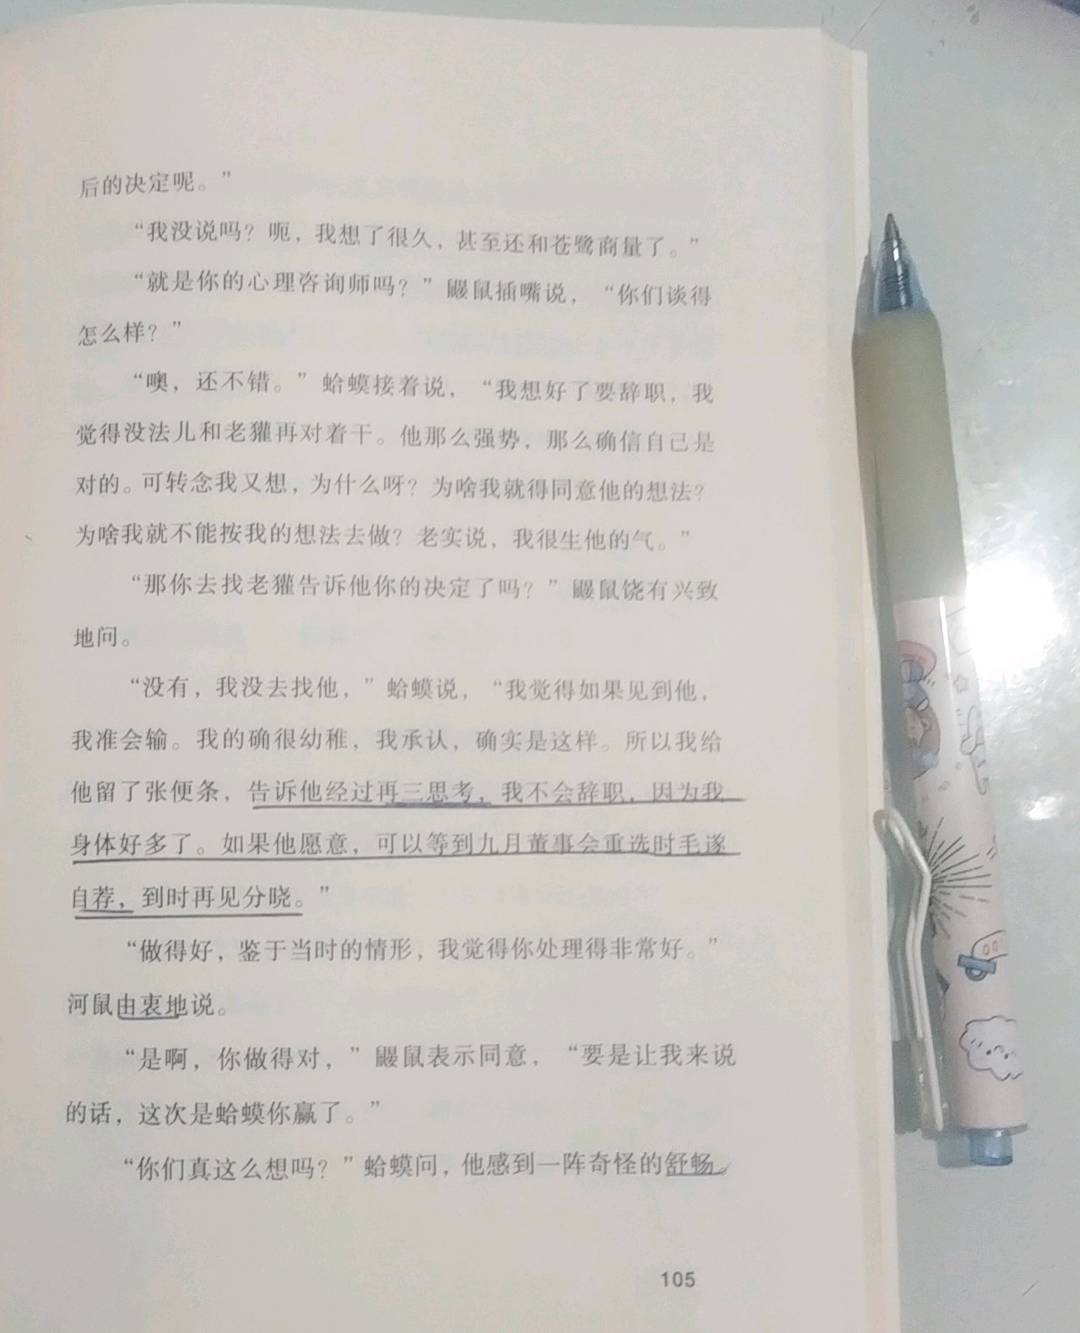 后的决定呢。”
“我没说吗？呃，我想了很久，甚至还和苍鹭商量了。”
“就是你的心理咨询师吗？”鼹鼠插嘴说，“你们谈得
怎么样？”
“噢，还不错。”蛤蟆接着说，“我想好了要辞职，我
觉得没法儿和老獾再对着干。他那么强势，那么确信自己是
对的。可转念我又想，为什么呀？为啥我就得同意他的想法？
为啥我就不能按我的想法去做？老实说，我很生他的气。”
“那你去找老獾告诉他你的决定了吗？”鼹鼠饶有兴致
地问。
“没有，我没去找他，”蛤蟆说，“我觉得如果见到他，
我准会输。我的确很幼稚，我承认，确实是这样。所以我给
他留了张便条，告诉他经过再三思考，我不会辞职，因为我
身体好多了。如果他愿意，可以等到九月董事会重选时毛遂
自荐，到时再见分晓。”
“做得好，鉴于当时的情形，我觉得你处理得非常好。”
河鼠由衷地说。
“是啊，你做得对，”鼹鼠表示同意，“要是让我来说
的话，这次是蛤蟆你赢了。”
“你们真这么想吗？”蛤蟆问，他感到一阵奇怪的舒畅。
105